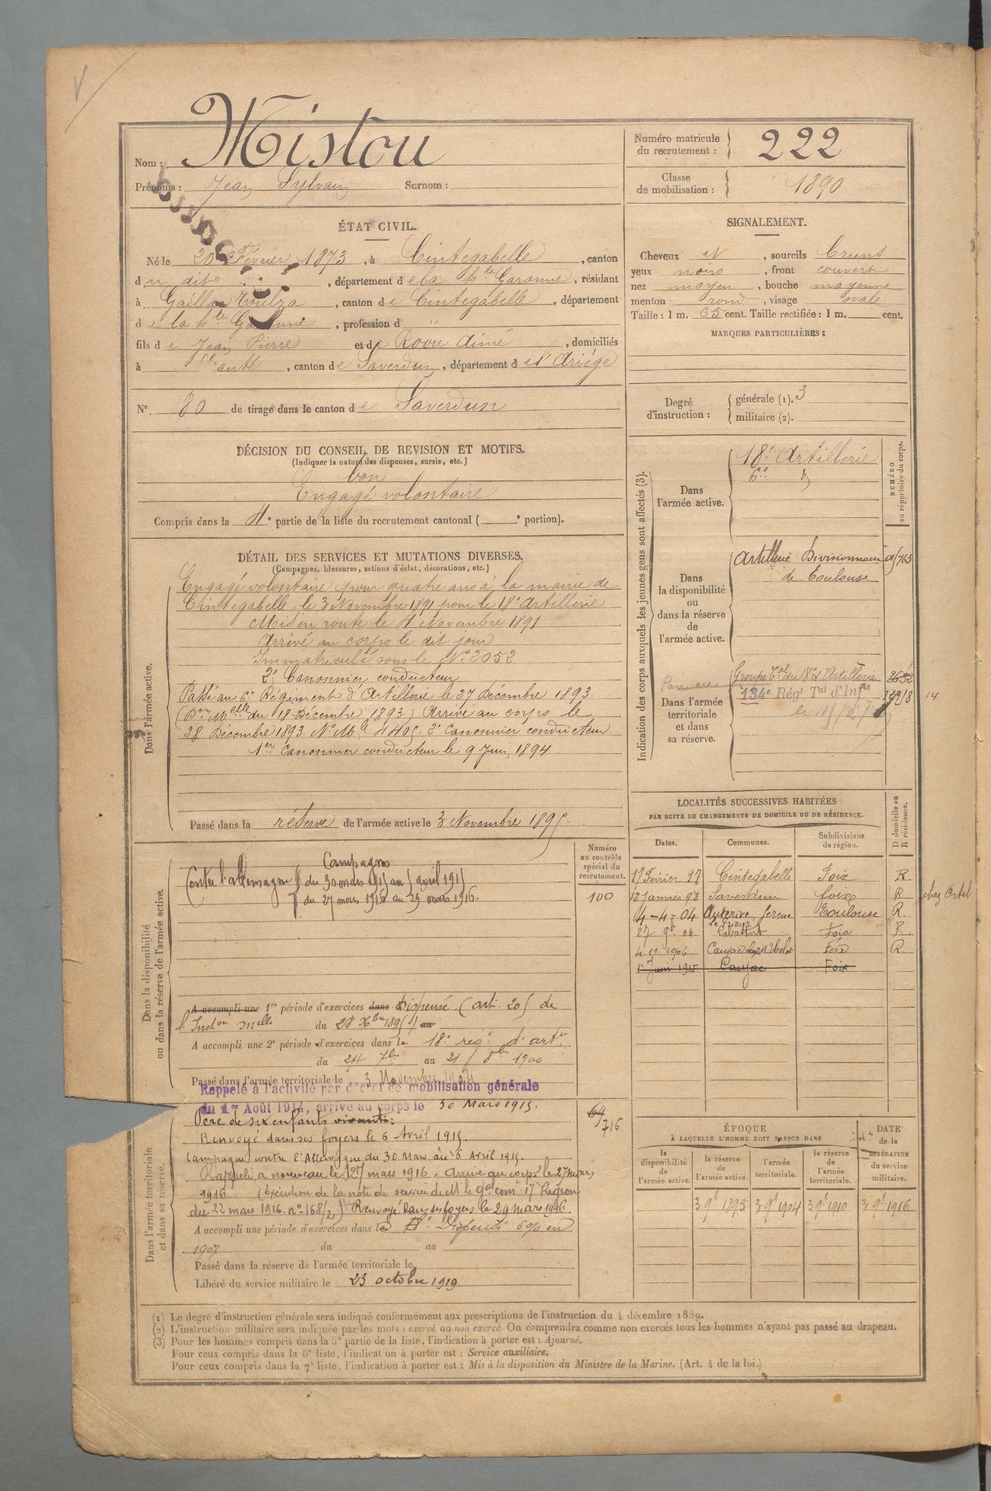 Nom : Mistou
Prénoms : Jean Sylvain Surnom :
Numéro matricule du recrutement : 222
Classe de mobilisation : 1890
ÉTAT CIVIL.
Né le 20 Février 1873, à Cintegabelle, canton
d u dit, département de la Hte Garonne, résidant
à Gaillac Toulza, canton de Cintegabelle, département
d e la Hte Garonne, profession d
fils d e Jean Pierre et de Rouu Aimé, domiciliés
à, canton de Saverdun, département d e l'Ariège
N°. 80 de tirage dans le canton d e Saverdun
SIGNALEMENT.
Cheveux et, sourcils bruns
yeux noirs, front couvert
nez moyen, bouche moyenne
menton rond, visage ovale
Taille : 1 m. 65 cent. Taille rectifiée : 1 m. cent.
MARQUES PARTICULIÈRES :
Degré d'instruction : générale (1). 3
militaire (2).
DÉCISION DU CONSEIL DE REVISION ET MOTIFS.
(Indiquer la nature des dispenses, sursis, etc.)
bon
Engagé volontaire
Compris dans la 4e partie de la liste du recrutement cantonal ( e portion).
DÉTAIL DES SERVICES ET MUTATIONS DIVERSES.
(Campagnes, blessures, actions d'éclat, décorations, etc.)
Dans l'armée active.
Engagé volontaire pour quatre ans à la mairie de
Cintegabelle le 3 Novembre 1891 pour le 18e Artillerie
Mis en route le 4 Novembre 1891
Arrivé au corps le dit jour
Immatriculé sous le No 2052
2e Canonnier conducteur
Passé au 6e Régiment d'Artillerie le 27 Décembre 1893.
(Don Melle du 18 Décembre 1893) Arrivé au corps le
28 Décembre 1893. No Mle 4405. 2e Canonnier conducteur
1er Canonnier conducteur le 9 Juin 1894
Passé dans la réserve de l'armée active le 3 Novembre 1895
Indication des corps auxquels les jeunes gens sont affectés (3).
NUMÉRO au répertoire du corps.
Dans l'armée active.
18e Artillerie
6e d
Dans la disponibilité ou dans la réserve de l'armée active.
Artillerie Divisionnaire
de Toulouse
Dans l'armée territoriale et dans sa réserve.
Groupe Tal du 18e Artillerie
134e Régt Tal d'Infie
14
LOCALITÉS SUCCESSIVES HABITÉES
PAR SUITE DE CHANGEMENTS DE DOMICILE OU DE RÉSIDENCE.
Dates. Communes. Subdivisions de région. D domicile ou R résidence.
17 Février 97 Cintegabelle Foix R
12 Janvier 98 Saverdun foix R chez Ortet
4-4-04 Auterive, ferme Toulouse R.
27 9b 04 Foix R
4 11 1906 Canjac Foix R
1er Juin 1915 Canjac Foix
Dans la disponibilité ou dans la réserve de l'armée active.
Numéro au contrôle spécial du recrutement.
100
Campagnes
Contre l'allemagne du 30 mars 1915 au 5 avril 1915
du 27 mars 1916 au 29 mars 1916.
A accompli une 1re période d'exercices dans Dispensé (art. 20) de
l'Inston Melle du 28 Xbre 1895) au
A accompli une 2e période d'exercices dans le 18e rég. d'artie
du 24 7bre au 21 8bre 1900
Passé dans l'armée territoriale le 3 Novembre 1904
Rappelé à l'activité par décret de mobilisation générale
du 1er Août 1914, arrivé au corps le 30 Mars 1915.
Dans l'armée territoriale et dans sa réserve.
69
716
Père de six enfants vivants.
Renvoyé dans ses foyers le 6 Avril 1915.
Campagne contre l'Allemagne du 30 Mars au 5 Avril 1915.
Rappelé à nouveau le 1er mars 1916 - Arrivé au corps le 27 Mars
1916 (Exécution de la note de service de M le gal comt 17e Région
du 22 mars 1916. no 168/2) Renvoyé dans ses foyers le 29 mars 1916
A accompli une période d'exercices dans le Dispensé
1907 du au
Passé dans la réserve de l'armée territoriale le
Libéré du service militaire le 23 octobre 1919
ÉPOQUE
À LAQUELLE L'HOMME DOIT PASSER DANS
DATE de la LIBÉRATION du service militaire.
la disponibilité de l'armée active. la réserve de l'armée active. l'armée territoriale. la réserve de l'armée territoriale.
3 9b 1895 3 9b 1904 3 9b 1910 3 9b 1916
(1) Le degré d'instruction générale sera indiqué conformément aux prescriptions de l'instruction du 4 décembre 1889.
(2) L'instruction militaire sera indiquée par les mots : exercé ou non exercé. On comprendra comme non exercés tous les hommes n'ayant pas passé au drapeau.
(3) Pour les hommes compris dans la 5e partie de la liste, l'indication à porter est : Ajourné.
Pour ceux compris dans la 6e liste, l'indication à porter est : Service auxiliaire.
Pour ceux compris dans la 7e liste, l'indication à porter est : Mis à la disposition du Ministre de la Marine. (Art. 4 de la loi.)